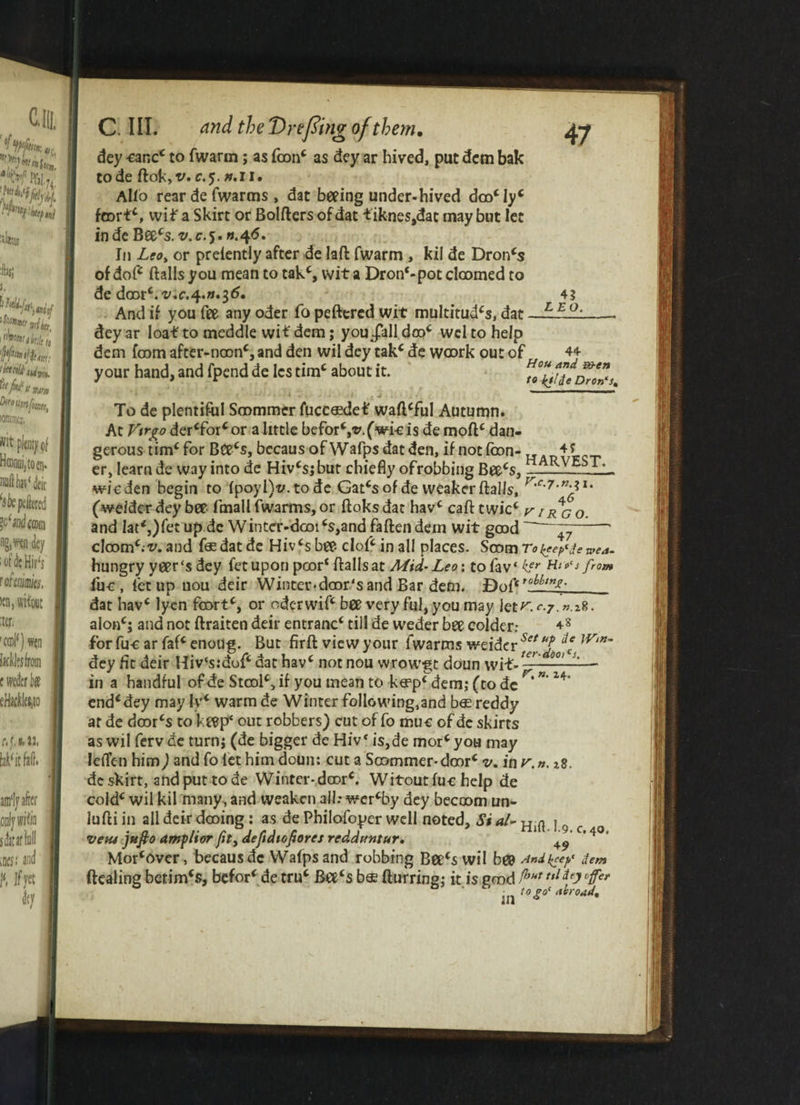 C. III. and the Dreſsing of them. 47
dey canc‘ to ſwarm ; as ſoon‘ as dey ar hived, put dem bak
to de ſtok, v. c.5. n.11.
Alſo rear de ſwarms , dat beeing under-hived doo‘ ly‘
foort‘, wit a Skirt or Bolſters of dat tiknes, dat may but let
in de Bee‘s. v. c.5. n.46.
In Leo, or preſently after de laſt ſwarm , kil de Dron‘s
of doſ‘ ſtalls you mean to tak‘, wit a Dron‘-pot cloomed to
de door‘. v. c.4. n.36.
43
LEO.
And if you ſee any oder ſo peſtered wit multitud‘s, dat
dey ar loat to meddle wit dem ; you ſall doo‘ wel to help
dem ſoom after-noon‘, and den wil dey tak‘ de woork out of
your hand, and ſpend de les tim‘ about it.
44
Hou and wen
to kil de Dron‘s.
To de plentiful Soommer ſucceedet waſt‘ful Autumn.
At Virgo der‘for‘ or a little befor‘, v. (wic is de moſt‘ dan-
gerous tim‘ for Bee‘s, becaus of Waſps dat den, if not ſoon-
er, learn de way into de Hiv‘s; but chiefly of robbing Bee‘s,
wic den begin to ſpoyl) v. to de Gat‘s of de weaker ſtalls,
(weider dey bee ſmall ſwarms, or ſtoks dat hav‘ caſt twic‘
and lat‘,) ſet up de Winter-door‘s, and faſten dem wit good
cloom‘: v. and ſee dat de Hiv‘s bee cloſ‘ in all places. Soom
45
HARVEST.
V. c.7. n.31.
46
VIRGO.
47
To keep‘ de wea-
ker Hiv‘s from
robbing.
hungry yeer‘s dey ſet upon poor‘ ſtalls at Mid-Leo : to ſav‘
ſuc , ſet up nou deir Winter-door‘s and Bar dem. Doſ‘
dat hav‘ lyen foort‘, or oderwiſ‘ bee very ful, you may let
alon‘; and not ſtraiten deir entranc‘ till de weder bee colder:
for ſuc ar ſaf‘ enoug. But firſt view your ſwarms weider
dey fit deir Hiv‘s: doſ‘ dat hav‘ not nou wrowgt doun wit-
V. c.7. n.28.
48
Set up de Win-
ter-door‘s.
V. n. 24.
in a handful of de Stool‘, if you mean to keep‘ dem; (to de
end‘ dey may ly‘ warm de Winter following, and bee reddy
at de door‘s to keep‘ out robbers) cut of ſo muc of de skirts
as wil ſerv de turn; (de bigger de Hiv‘ is, de mor‘ you may
leſſen him) and ſo let him doun: cut a Soommer-door‘ v. in
V. n. 28.
de skirt, and put to de Winter-door‘. Witout ſuc help de
cold‘ wil kil many, and weaken all: wer‘by dey becoom un-
luſti in all deir dooing : as de Philoſoper well noted, Si al-
veus juſto amplior ſit, deſidioſiores redduntur.
Hiſt. l.9. c. 40.
49
Mor‘over, becaus de Waſps and robbing Bee‘s wil bee
ſtealing betim‘s, befor‘ de tru‘ Bee‘s bee ſturring; it is good
And keep‘ dem
ſhut til dey offer
to go‘ abroad.
in